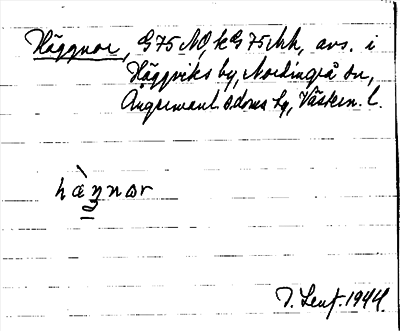 Häggnor, G 75 NO, kG 75 Mh, avs. i
Häggviks by, Nordingrå sn,
Ångermanl. s. doms hg, Västern. l.
hæ̀ŋnɷr
J. Lenf. 1944.